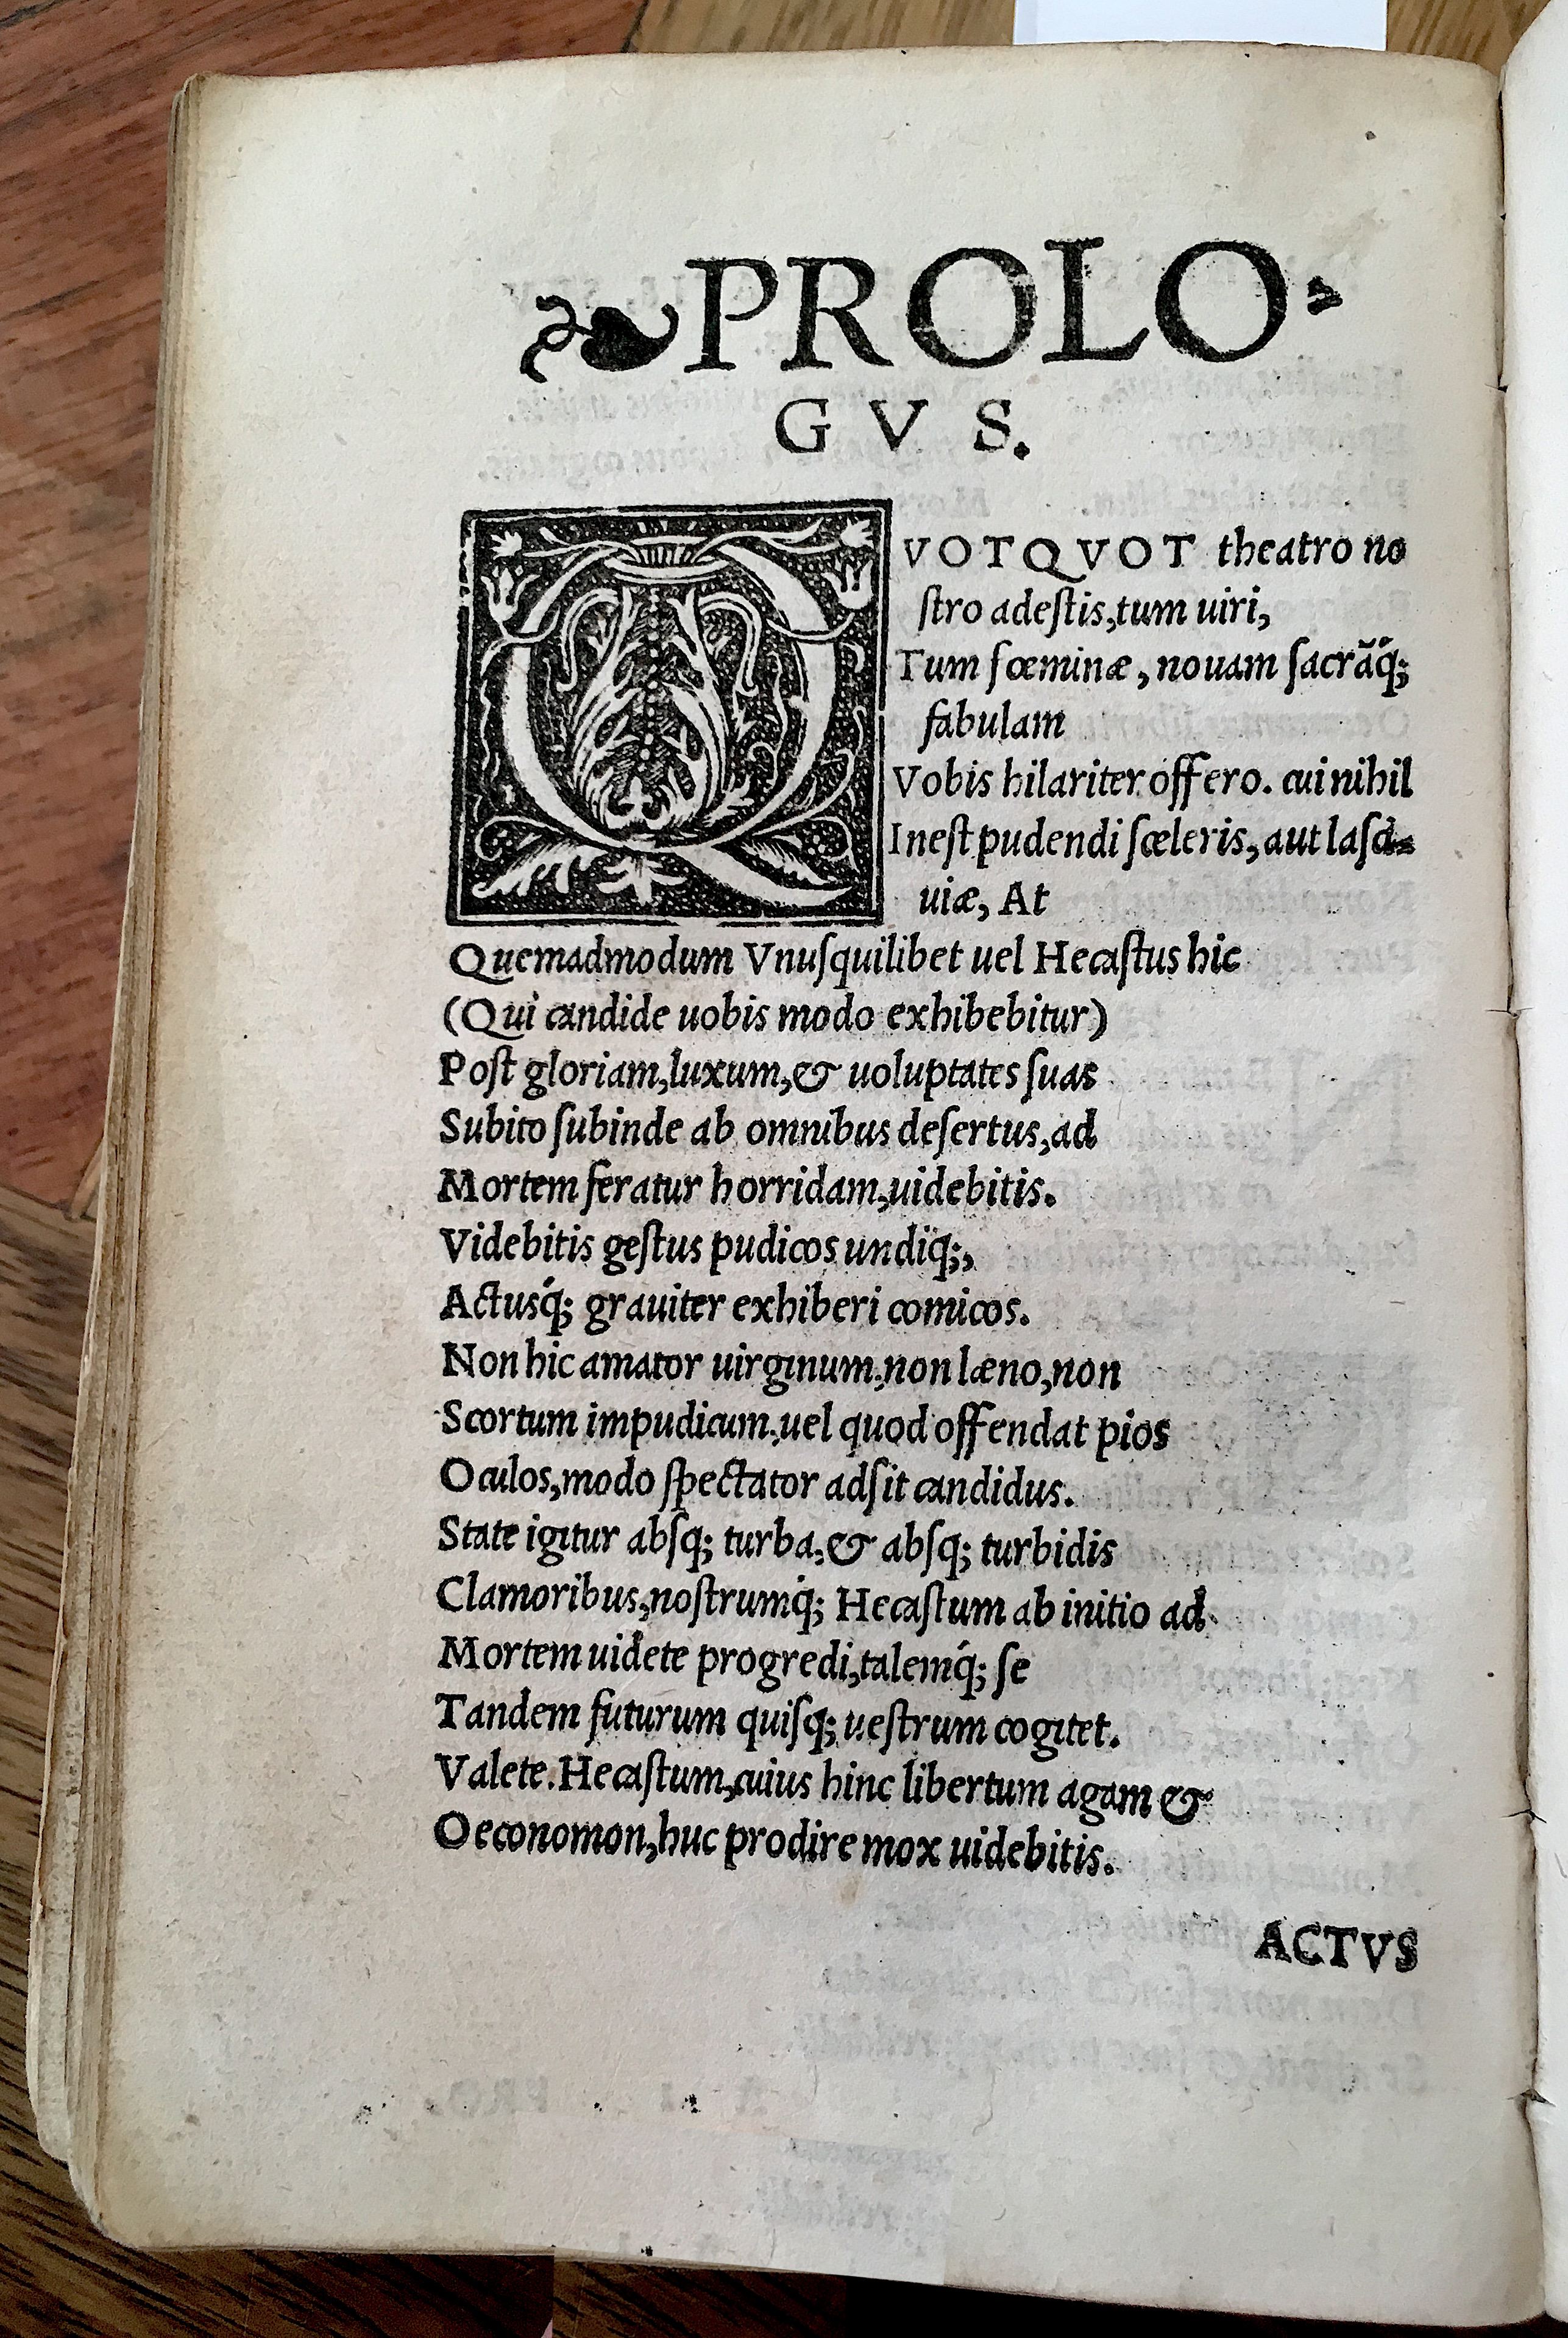 ❧PROLO⸗
GVS.
QVOTQVOT theatro no
ſtro adeſtis,tum uiri,
Tum fœminæ, nouam ſacrãq́;
fabulam
Vobis hilariter offero. cui nihil
Ineſt pudendi ſceleris, aut laſci⸗
uiæ, At
Quemadmodum Vnuſquilibet uel Hecaſtus hic
(Qui candide uobis modo exhibebitur)
Poſt gloriam,luxum,& uoluptates ſuas
Subito ſubinde ab omnibus deſertus,ad
Mortem feratur horridam,uidebitis.
Videbitis geſtus pudicos undiq̈;,
Actusq́; grauiter exhiberi comicos.
Non hic amator uirginum,non læno,non
Scortum impudicum,uel quod offendat pios
Oculos,modo ſpectator adſit candidus.
State igitur abſq; turba,& abſq; turbidis
Clamoribus,noſtrumq́; Hecaſtum ab initio ad
Mortem uidete progredi,talemq́; ſe
Tandem futurum quiſq; ueſtrum cogitet.
Valete.Hecaſtum,cuius hinc libertum agam &
Oeconomon,huc prodire mox uidebitis.
ACTVS